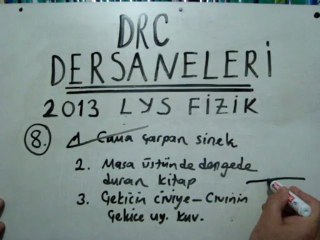 DRC
DERSANELERİ
2013 LYS FİZİK
8. 1. Cama çarpan sinek
2. Masa üstünde dengede
duran kitap
3. Çekicin çiviye - Çivinin
Çekice uy. kuv.